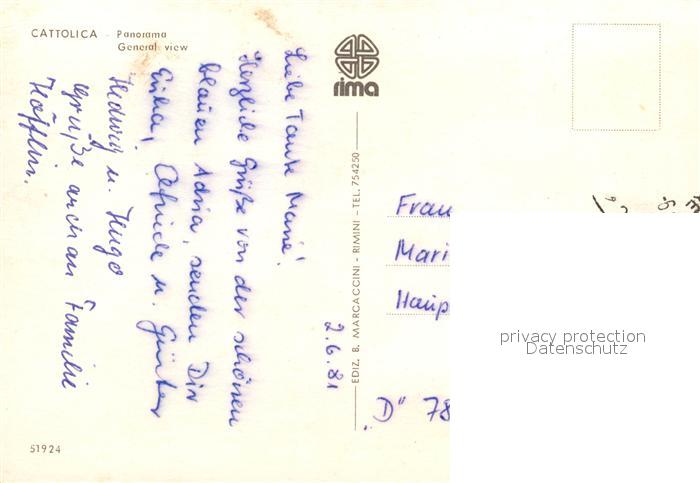 CATTOLICA - Panorama
General view
rima
2.6.81
Liebe Tante Marie!
Herzliche Grüße von der schönen
blauen Adria, senden Dir
Erika, u. Günter
Hedwig u. Hugo
Grüße auch an Familie
EDIZ. B. MARCACCINI - RIMINI - TEL. 754250
Frau
Mari
Haup
"D" 78
privacy protection
Datenschutz
51924